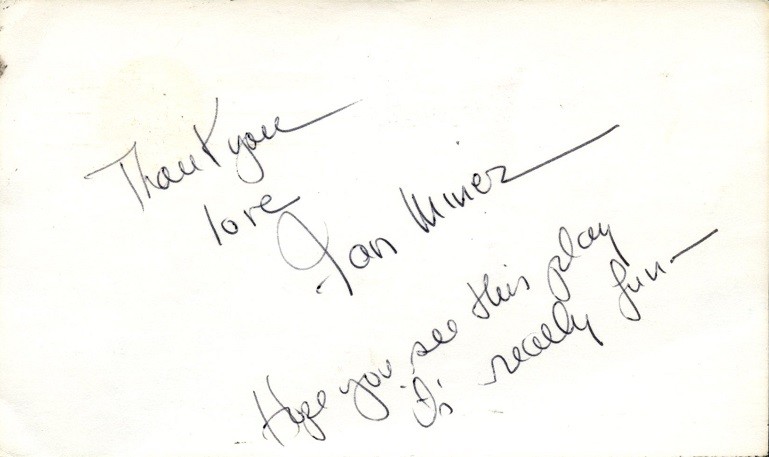 Thank you
love
Jan Miner
Hope you see this play
Is really fun